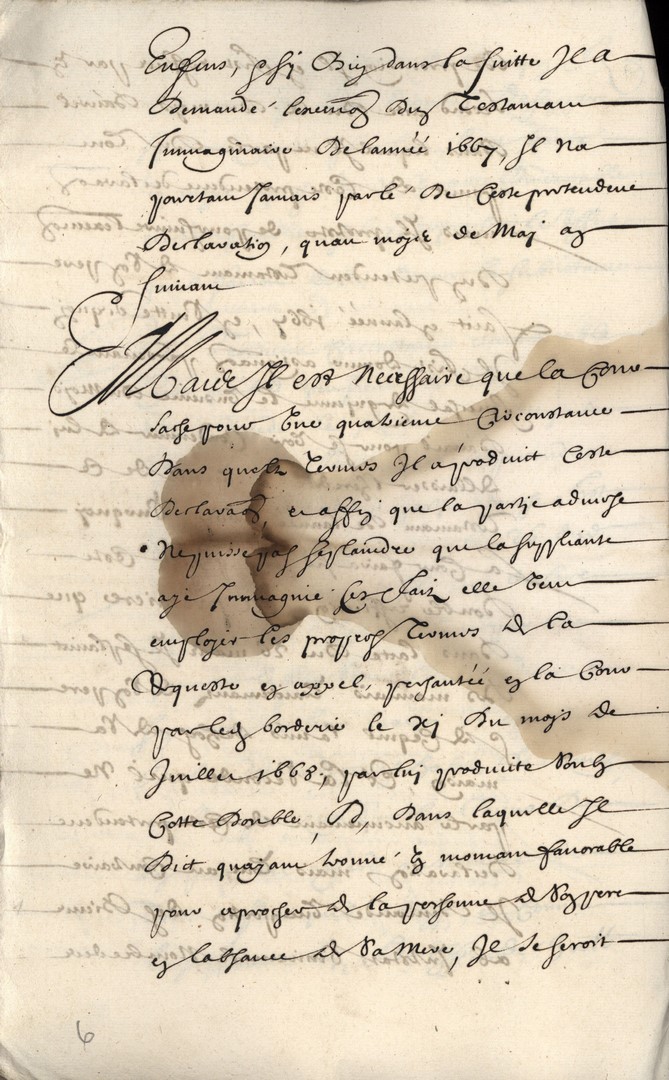 Enfens, et sy bien dans la suitte Il a
Demandé lexecuõn Du Testamant
Immaginaire De lannéé 1667, Il na
pourtant Jamais parlé De Ceste pretendeue
Declaration, quau mois de May
suivant
Mais Il est necessaire que la Cour
sache pour Une quatrieme Circonstance
Dans quelz Termes Il a produict Ceste
Declaraõn, et affin que la partie adverse
Ne puisse pas se plaindre que la suppliante
aye Immaginé Ces faitz elle Veut
employer les propres Termes de la
Requeste en appel, presantéé en la Cour
par led borderie le xj Du mois de
Juillet 1668, par luy produite Soubz
Cotte Double, D, Dans laquelle Il
Dict quayant trouvé Un momant favorable
pour aprocher de la personne de Son pere
en labsance de Sa Mere, Il se seroit
6